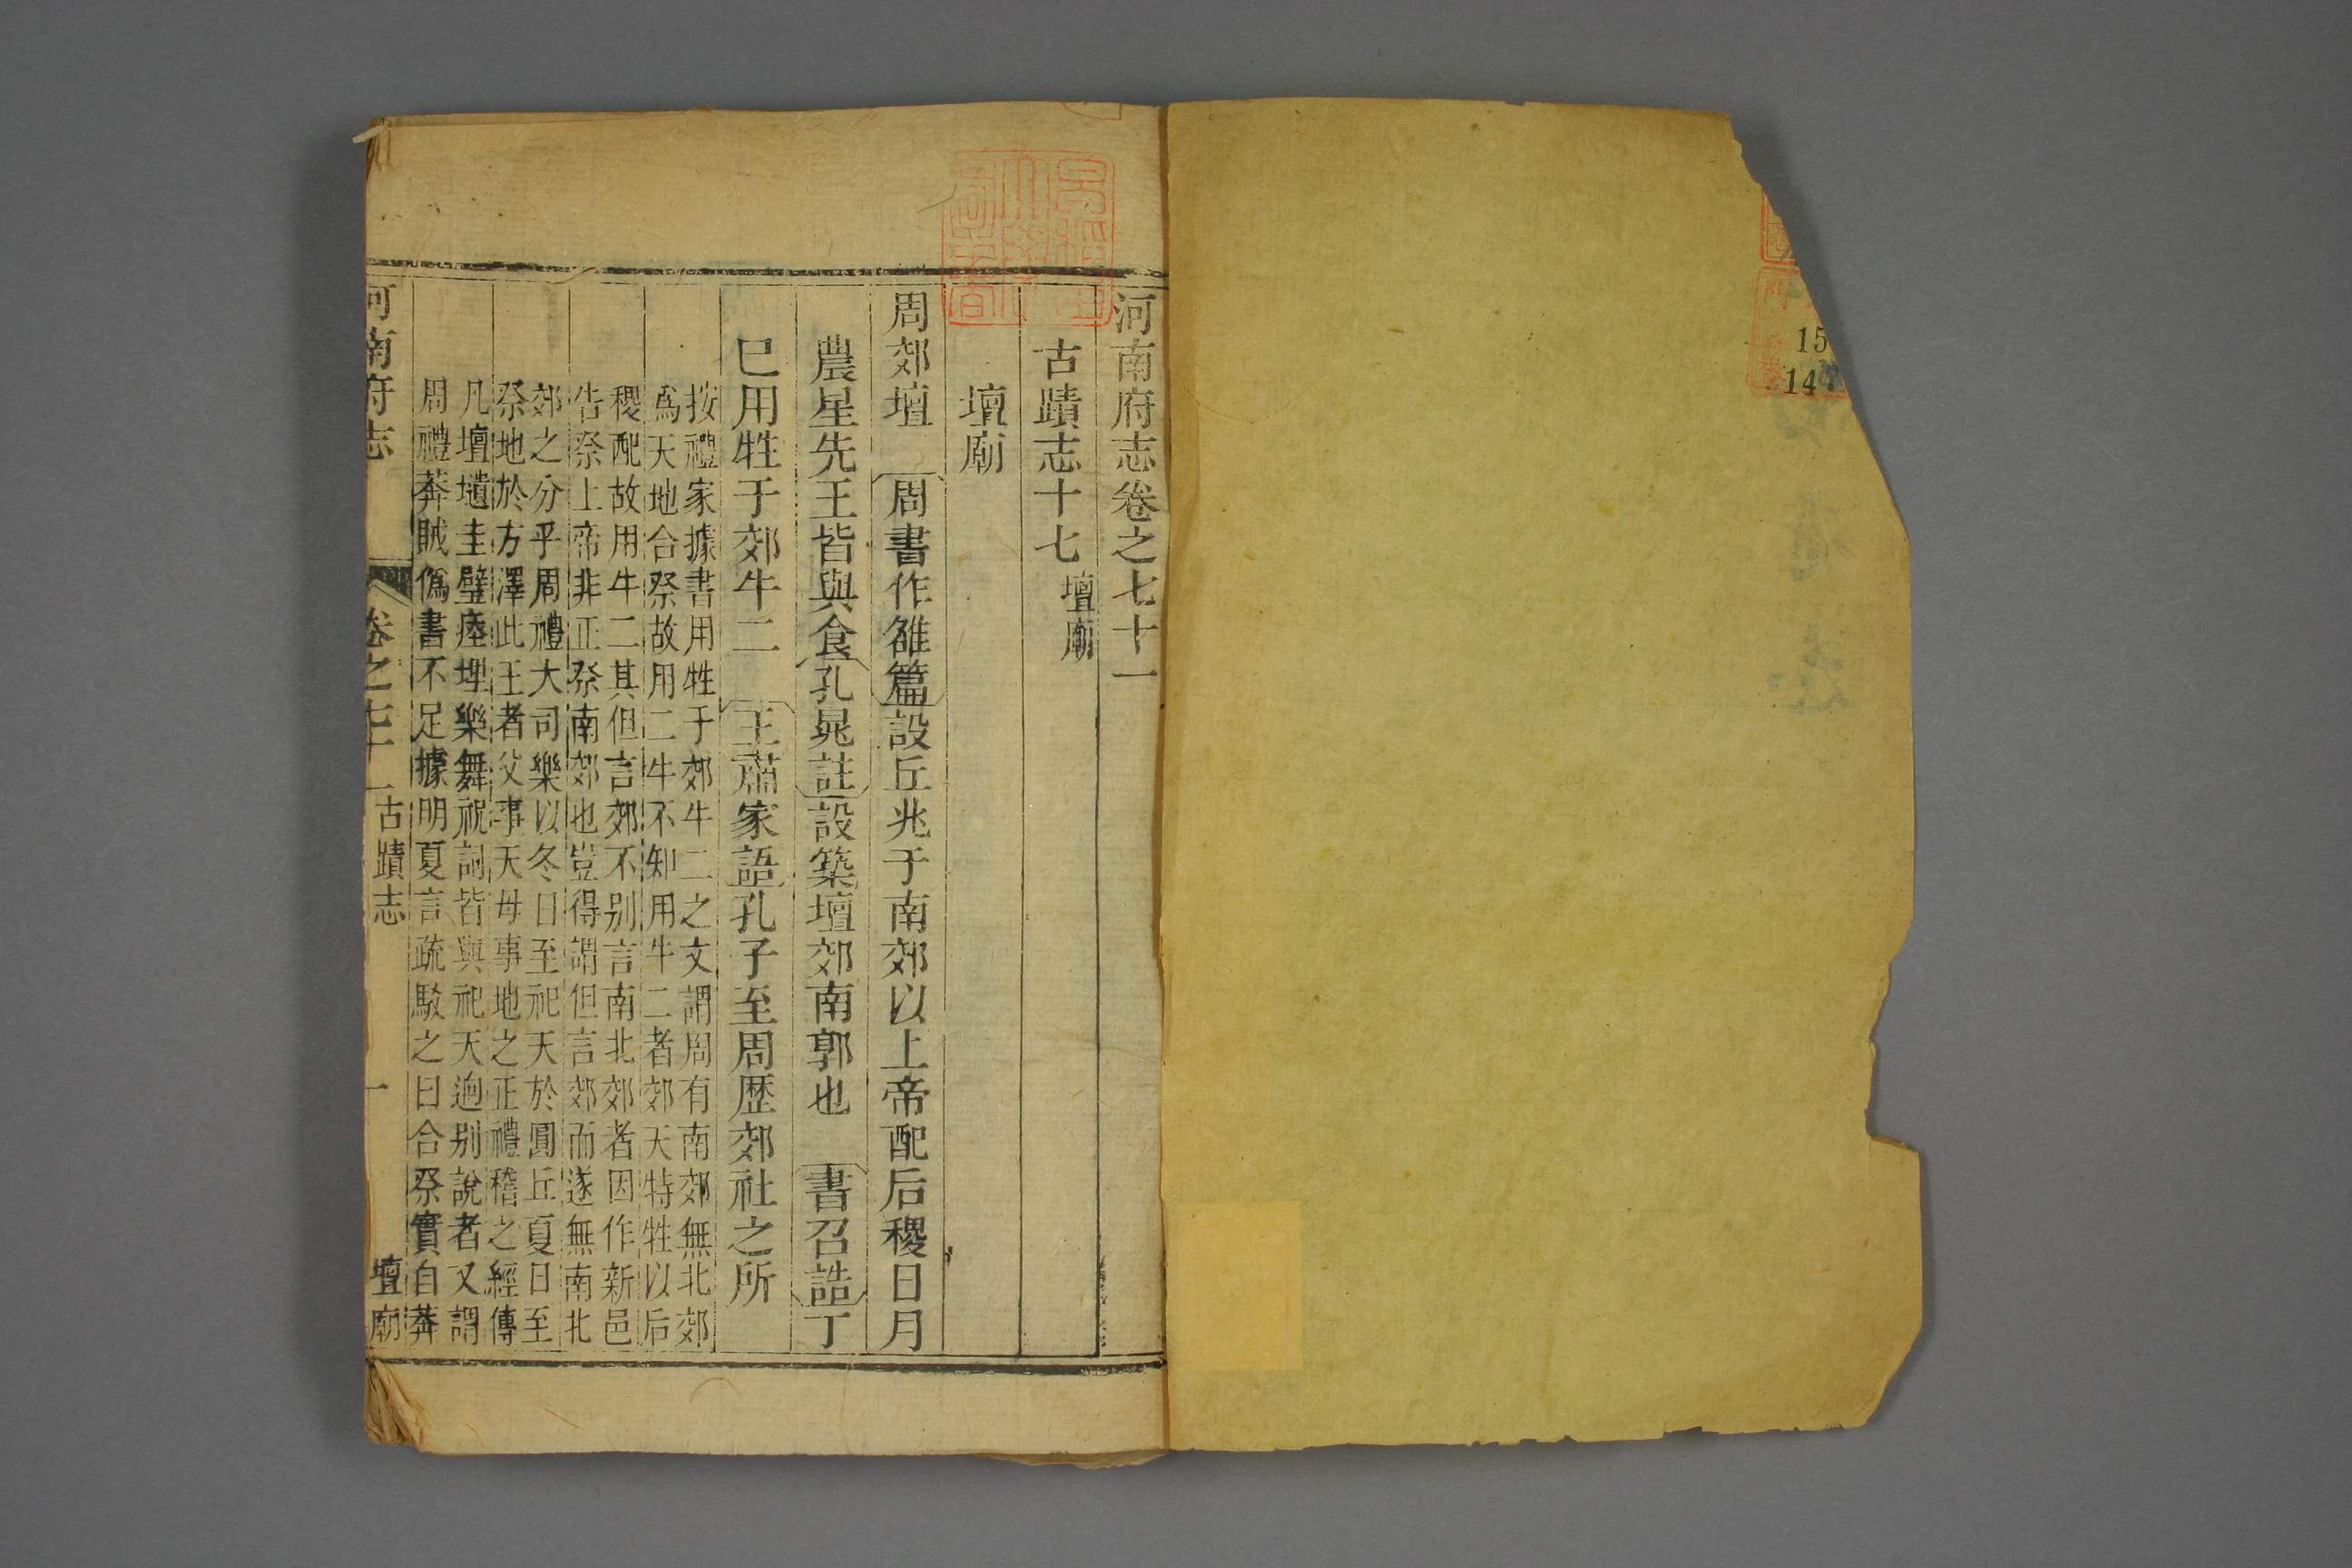 15
14
河南府志卷之七十一
古蹟志十七 壇廟
壇廟
周郊壇 周書作雒篇設丘兆于南郊以上帝配后稷日月
農星先王皆與食孔晁註設築壇郊南郭也 書召誥丁
巳用牲于郊牛二 王肅家語孔子至周歷郊社之所
按禮家據書用牲于郊牛二之文謂周有南郊無北郊
爲天地合祭故用二牛不知用牛二者郊天特牲以后
稷配故用牛二其但言郊不别言南北郊者因作新邑
告祭上帝非正祭南郊也豈得謂但言郊而遂無南北
郊之分乎周禮大司樂以冬日至祀天於圜丘夏日至
祭地於方澤此王者父事天母事地之正禮稽之經傳
凡壇壝圭璧瘞埋樂舞祝詞皆與祀天迥别說者又謂
周禮莽賊僞書不足據明夏言疏駁之曰合祭實自莽
河南府志 卷之七十一 古蹟志 一 壇廟